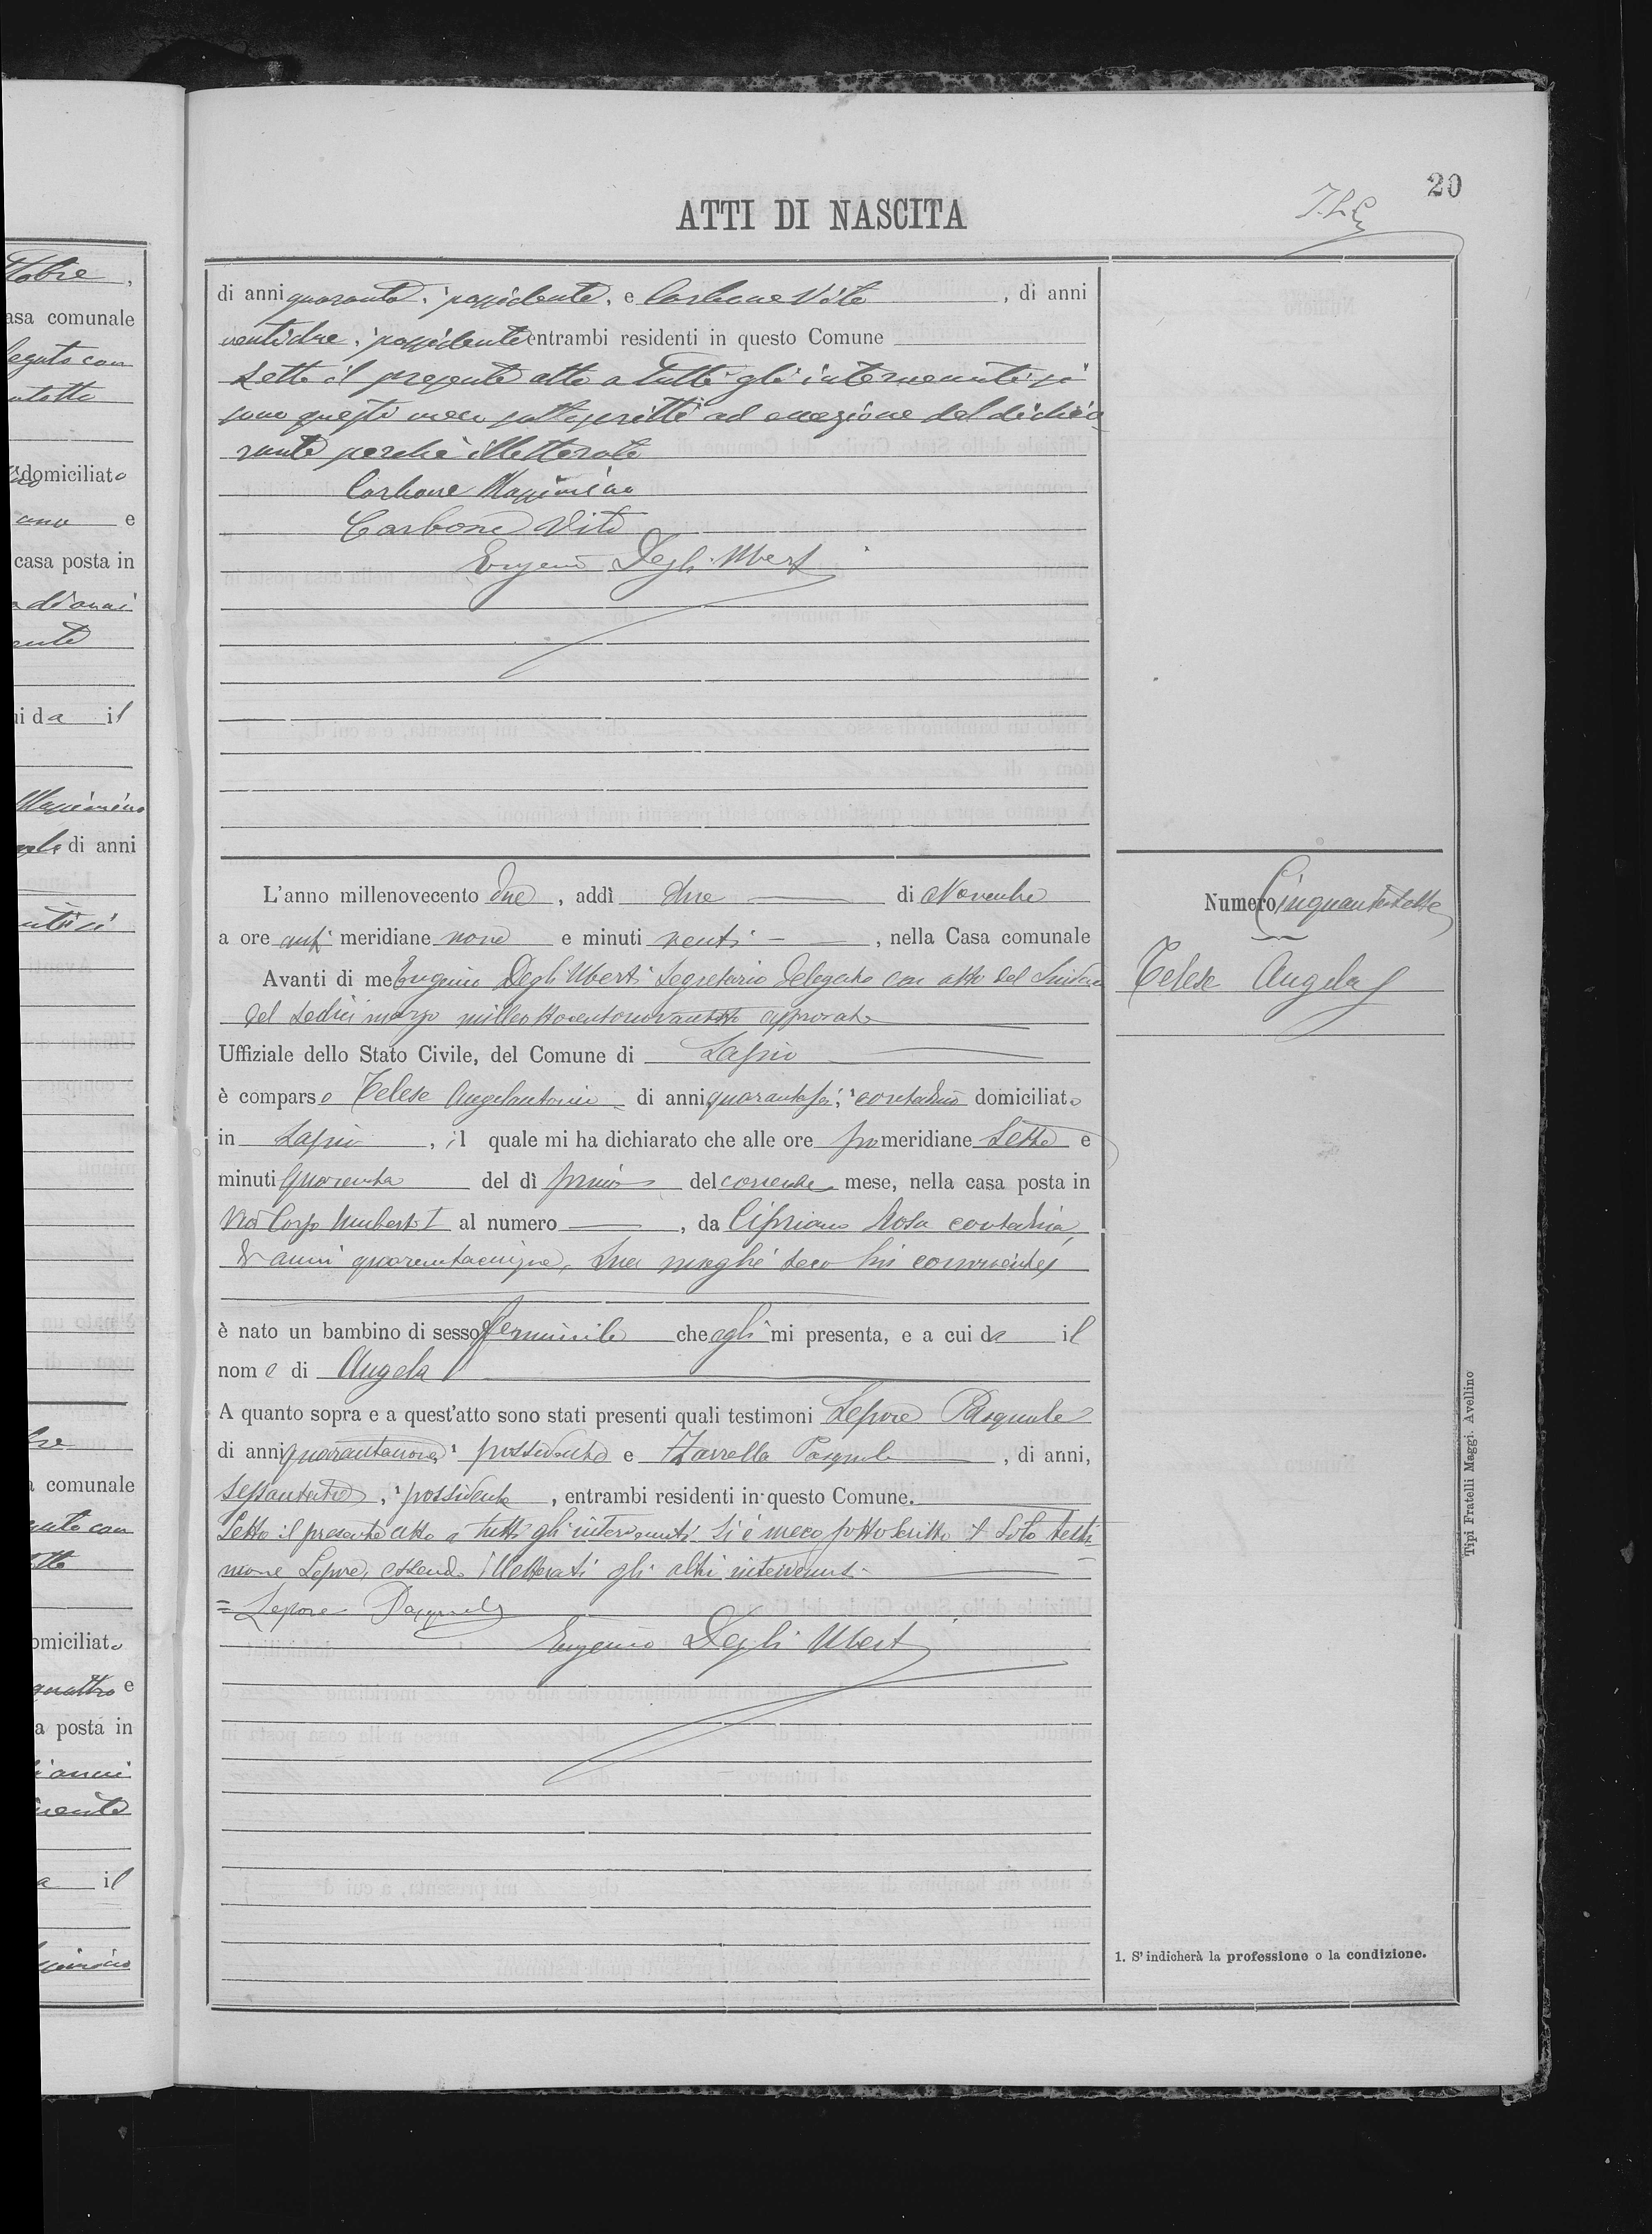 20
ATTI DI NASCITA
di anni quaranta, possidente, e Carbone Vito, di anni
ventidue, possidente entrambi residenti in questo Comune
Letto il presente atto a tutti gli intervenuti si
sono questi meco sottoscritti ad eccezione del dichia-
rante perchè illetterato
Carbone Massimino
Carbone Vito
Eugenio Degli Uberti
L'anno millenovecento due, addì due di Novembre
a ore anti meridiane nove e minuti venti, nella Casa comunale
Avanti di me Eugenio Degli Uberti Segretario Delegato con atto del Sindaco
del sedici marzo milleottocentonovantotto approvato
Uffiziale dello Stato Civile, del Comune di Lapio
è comparso Telese Angelantonio di anni quarantasei, contadino domiciliato
in Lapio, il quale mi ha dichiarato che alle ore pomeridiane sette e
minuti quaranta del dì primo del corrente mese, nella casa posta in
Via Corso Umberto I al numero, da Cipriano Rosa contadina,
di anni quarantacinque, sua moglie seco lui convivente
è nato un bambino di sesso femminile che egli mi presenta, e a cui da il
nome di Angela
A quanto sopra e a quest'atto sono stati presenti quali testimoni Lepore Pasquale
di anni quarantanove, possidente e Zarrella Pasquale, di anni,
sessantatre, possidente, entrambi residenti in questo Comune.
Letto il presente atto a tutti gli intervenuti si è meco sottoscritto il solo testi-
mone Lepore, essendo illetterati gli altri intervenuti
= Lepore Pasquale
Eugenio Degli Uberti
Numero Cinquantasette
Telese Angela
1. S'indicherà la professione o la condizione.
Tipi Fratelli Maggi. Avellino
asa comunale
domiciliato
e
casa posta in
di anni
il
di anni
comunale
omiciliato
quattro e
a posta in
il